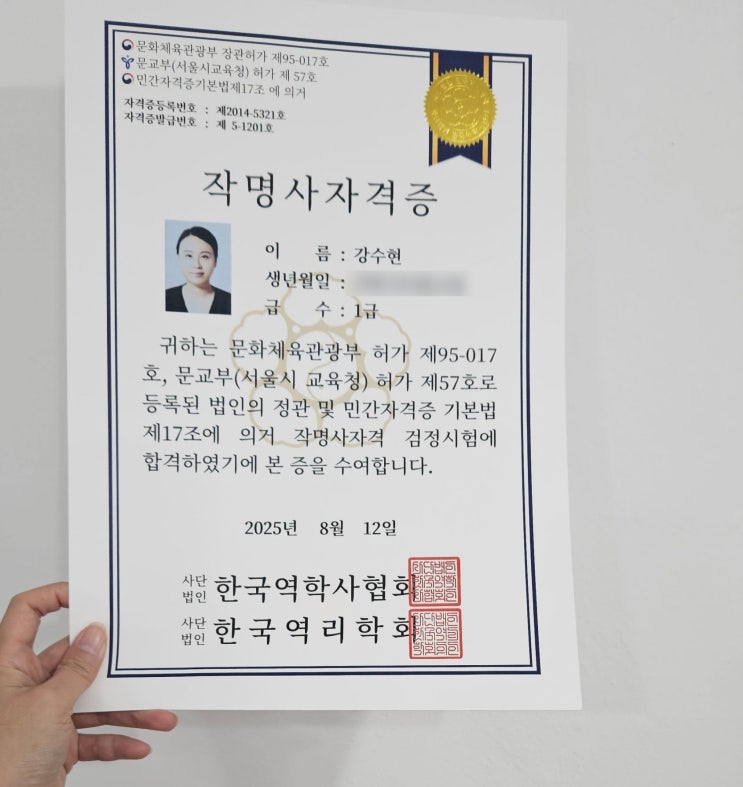 문화체육관광부 장관허가 제95-017호
문교부(서울시교육청) 허가 제 57호
민간자격증기본법제17조 에 의거
자격증등록번호 : 제2014-5321호
자격증발급번호 : 제 5-1201호
작명사자격증
이 름 : 강수현
생년월일 :
급 수 : 1급
귀하는 문화체육관광부 허가 제95-017
호, 문교부(서울시 교육청) 허가 제57호로
등록된 법인의 정관 및 민간자격증 기본법
제17조에 의거 작명사자격 검정시험에
합격하였기에 본 증을 수여합니다.
2025년 8월 12일
사단법인 한국역학사협회
사단법인 한국역리학회